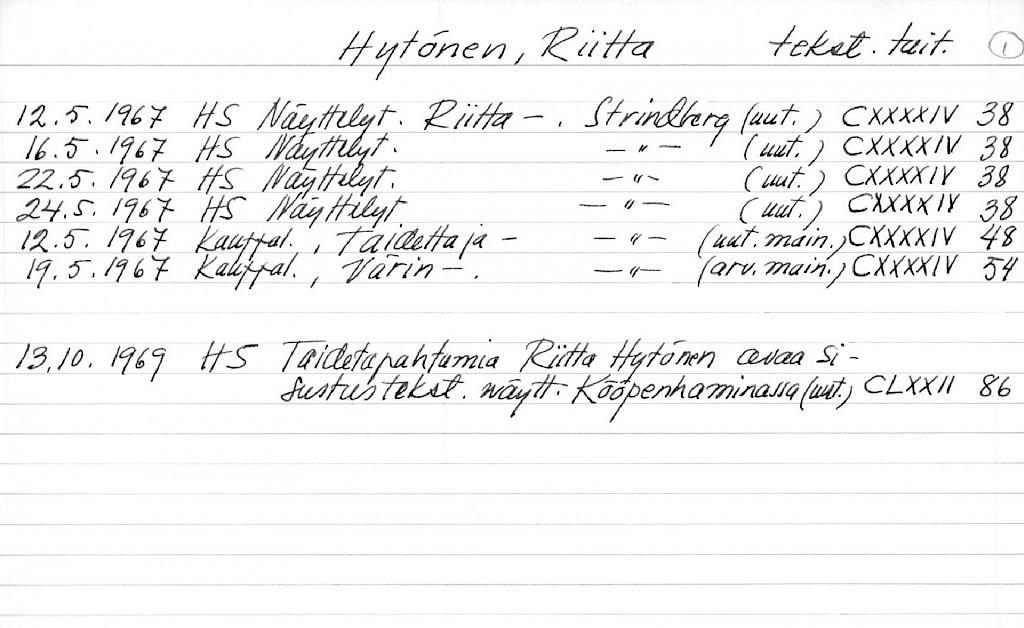 Hytönen, Riitta tekst. tait. 1
12.5.1967 HS Näyttelyt. Riitta –. Strindberg (uut.) CXXXXIV 38
16.5.1967 HS Näyttelyt. – " – (uut.) CXXXXIV 38
22.5.1967 HS Näyttelyt. – " – (uut.) CXXXXIV 38
24.5.1967 HS Näyttelyt – " – (uut.) CXXXXIV 38
12.5.1967 Kauppal., Taidettaja – – " – (uut. main.) CXXXXIV 48
19.5.1967 Kauppal., Värin –. – " – (arv. main.) CXXXXIV 54
13.10.1969 HS Taidetapahtumia Riitta Hytönen avaa si-
sustustekst. näytt. Kööpenhaminassa (uut.) CLXXII 86